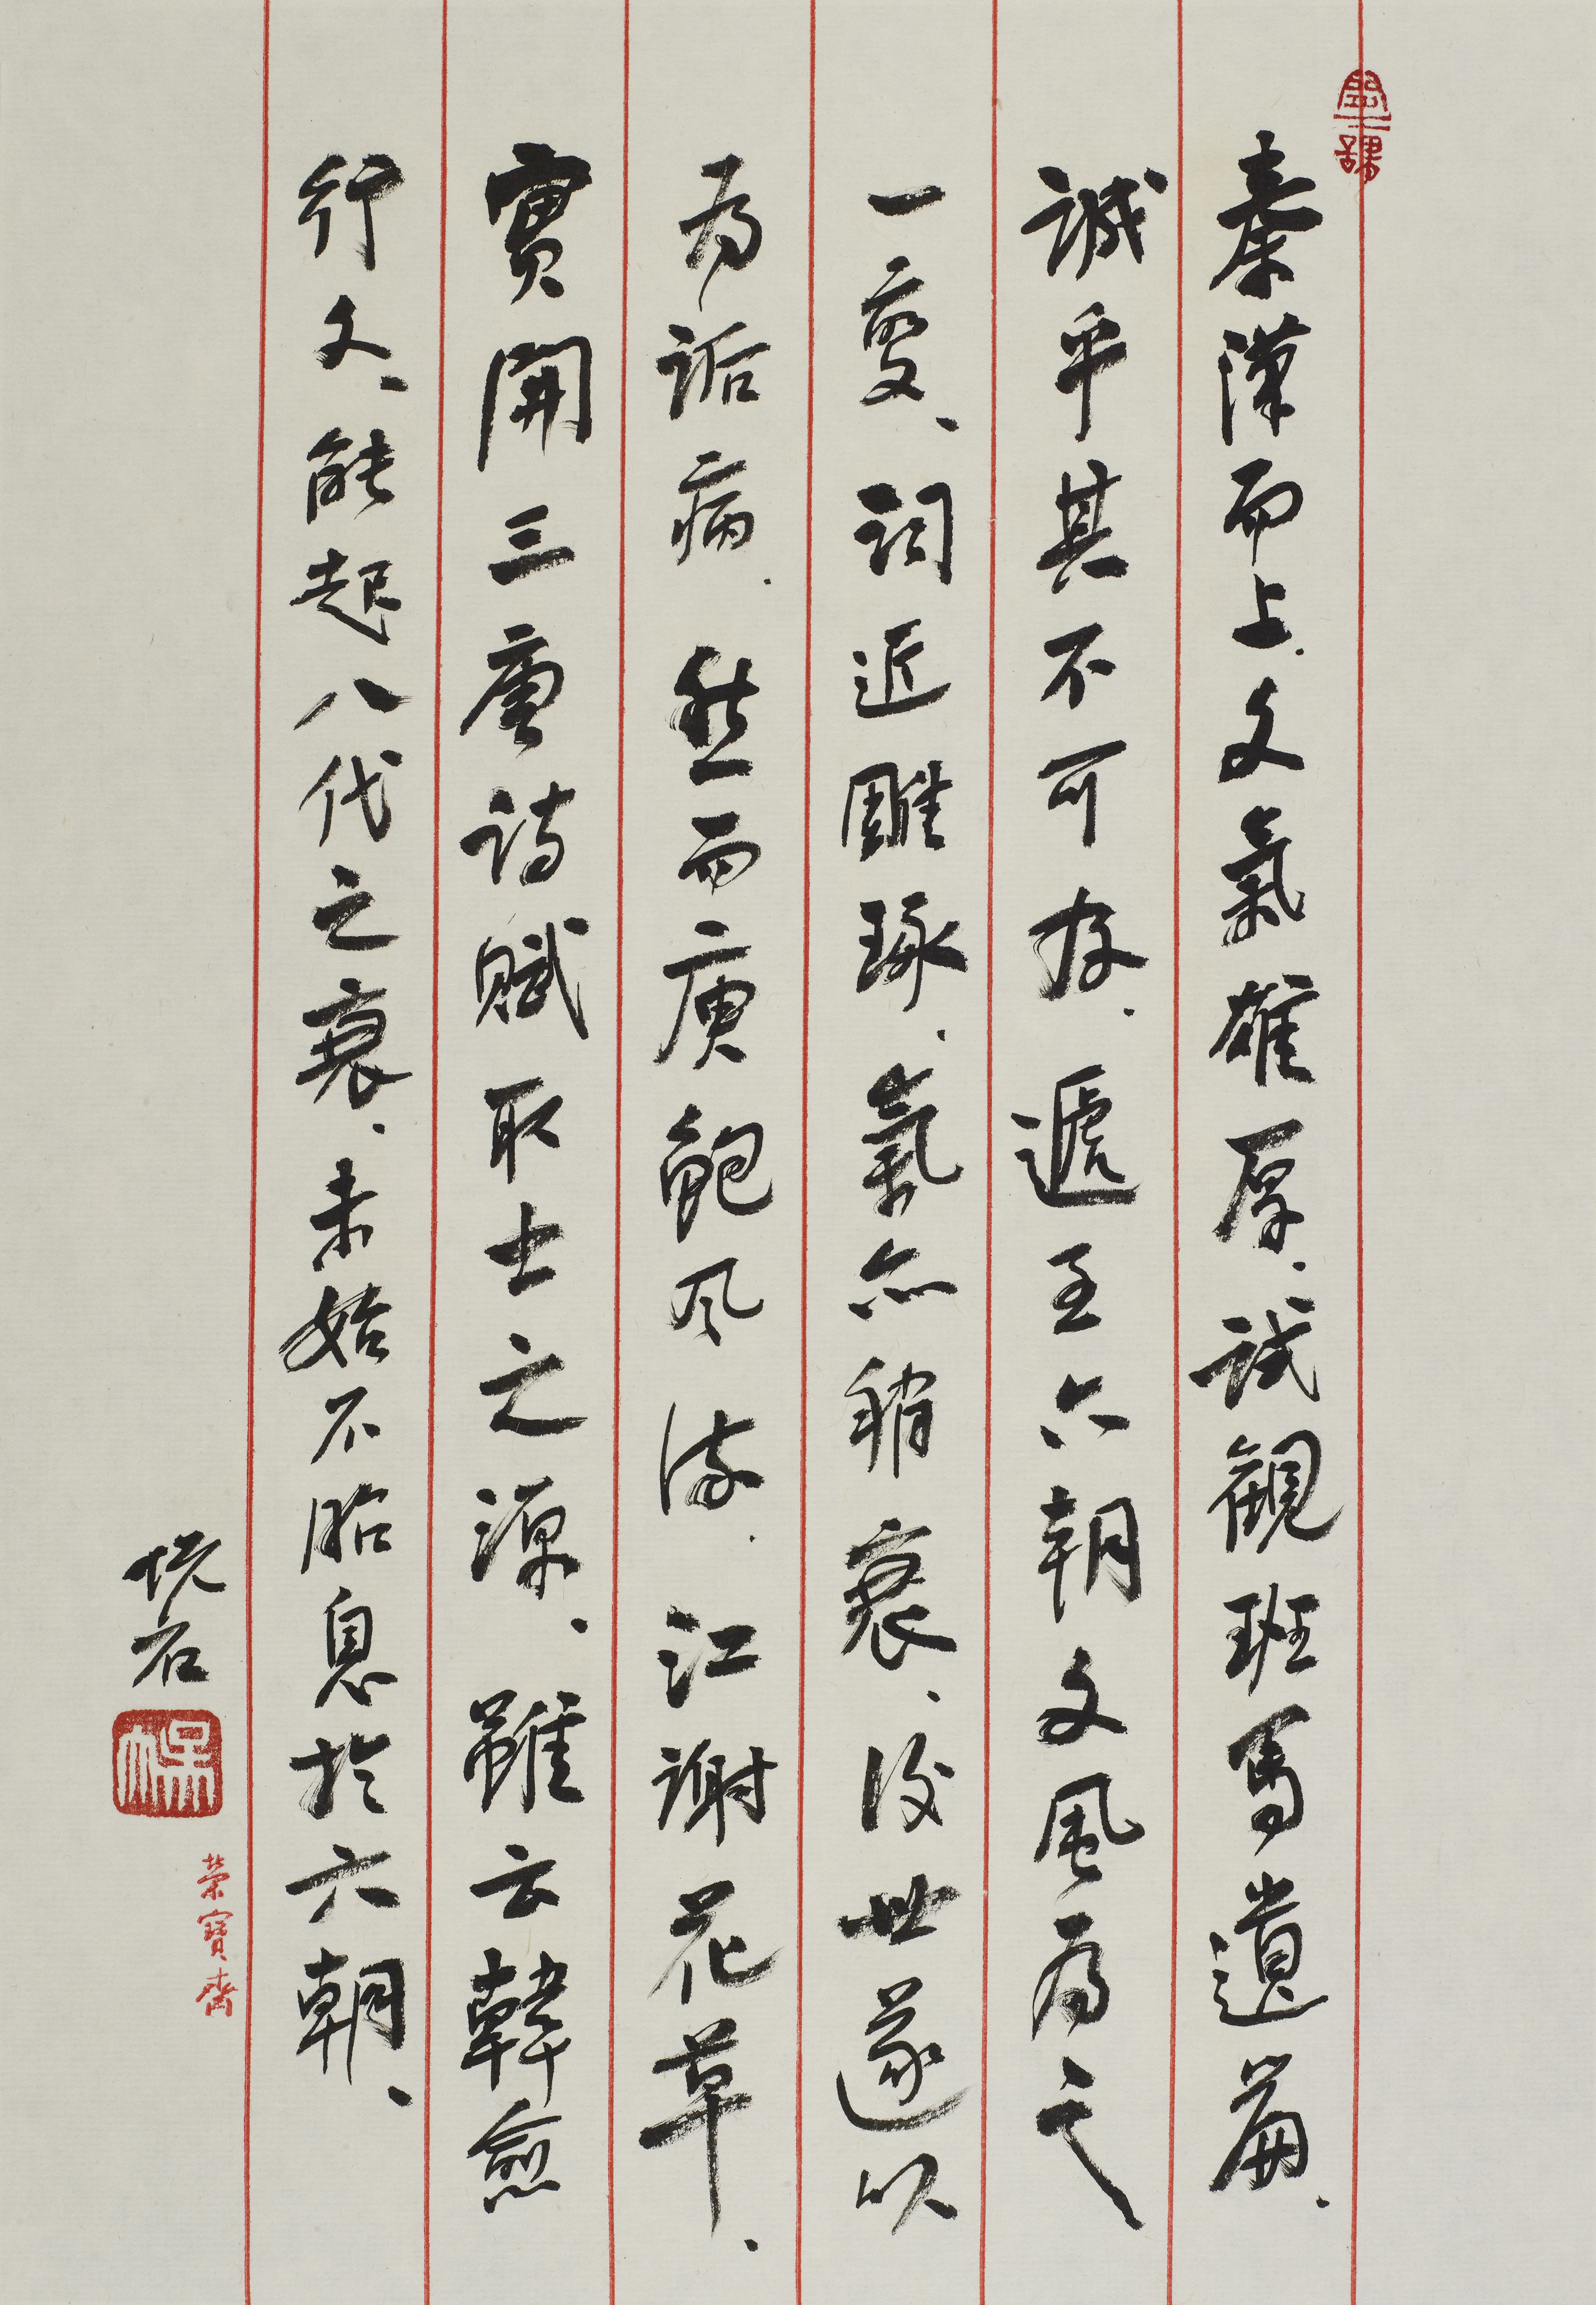 秦漢而上、文氣雄厚、試觀班馬遺篇、
誠乎其不可存、遞至六朝文風為之
一變、詞近雕琢、氣亦稍衰、後世遂以
為詬病、然而庾鮑风流、江謝花草、
實開三唐詩賦取士之源、雖云韓愈
行文、能起八代之衰、未始不胎息於六朝、
荣寶齋